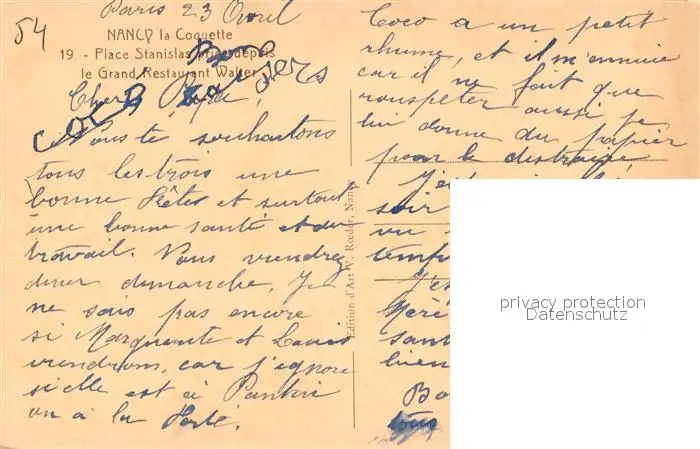 54
Paris 23 Avril
NANCY la Coquette
19 - Place Stanislas prise depuis
le Grand Restaurant Walter
Bon
baisers
Coco
Cher
Nous te souhaitons
tous les trois une
bonne fêtes et surtout
une bonne santé et du
travail. Vous viendrez
diner dimanche, Je
ne sais pas encore
si Marguerite et Louis
viendrons, car j'ignore
si elle est à Pantin
ou à la
Edition d'Art V. Rœder, Nancy
Coco a un petit
rhume, et il m'ennuie
car il ne fait que
rouspéter aussi je
lui donne du papier
pour le distraire,
soir
vu
temps
sant
bien
Bo
tous
privacy protection
Datenschutz